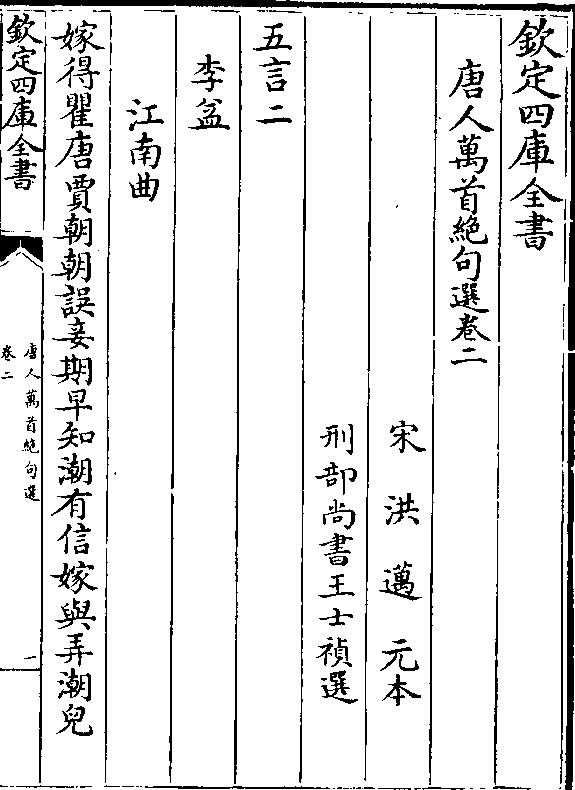 欽定四庫全書
唐人萬首絶句選卷二
宋洪邁元本
刑部尚書王士禎選
五言二
李益
江南曲
嫁得瞿唐賈朝朝誤妾期早知潮有信嫁與弄潮兒
欽定四庫全書
唐人萬首絶句選
卷二
一